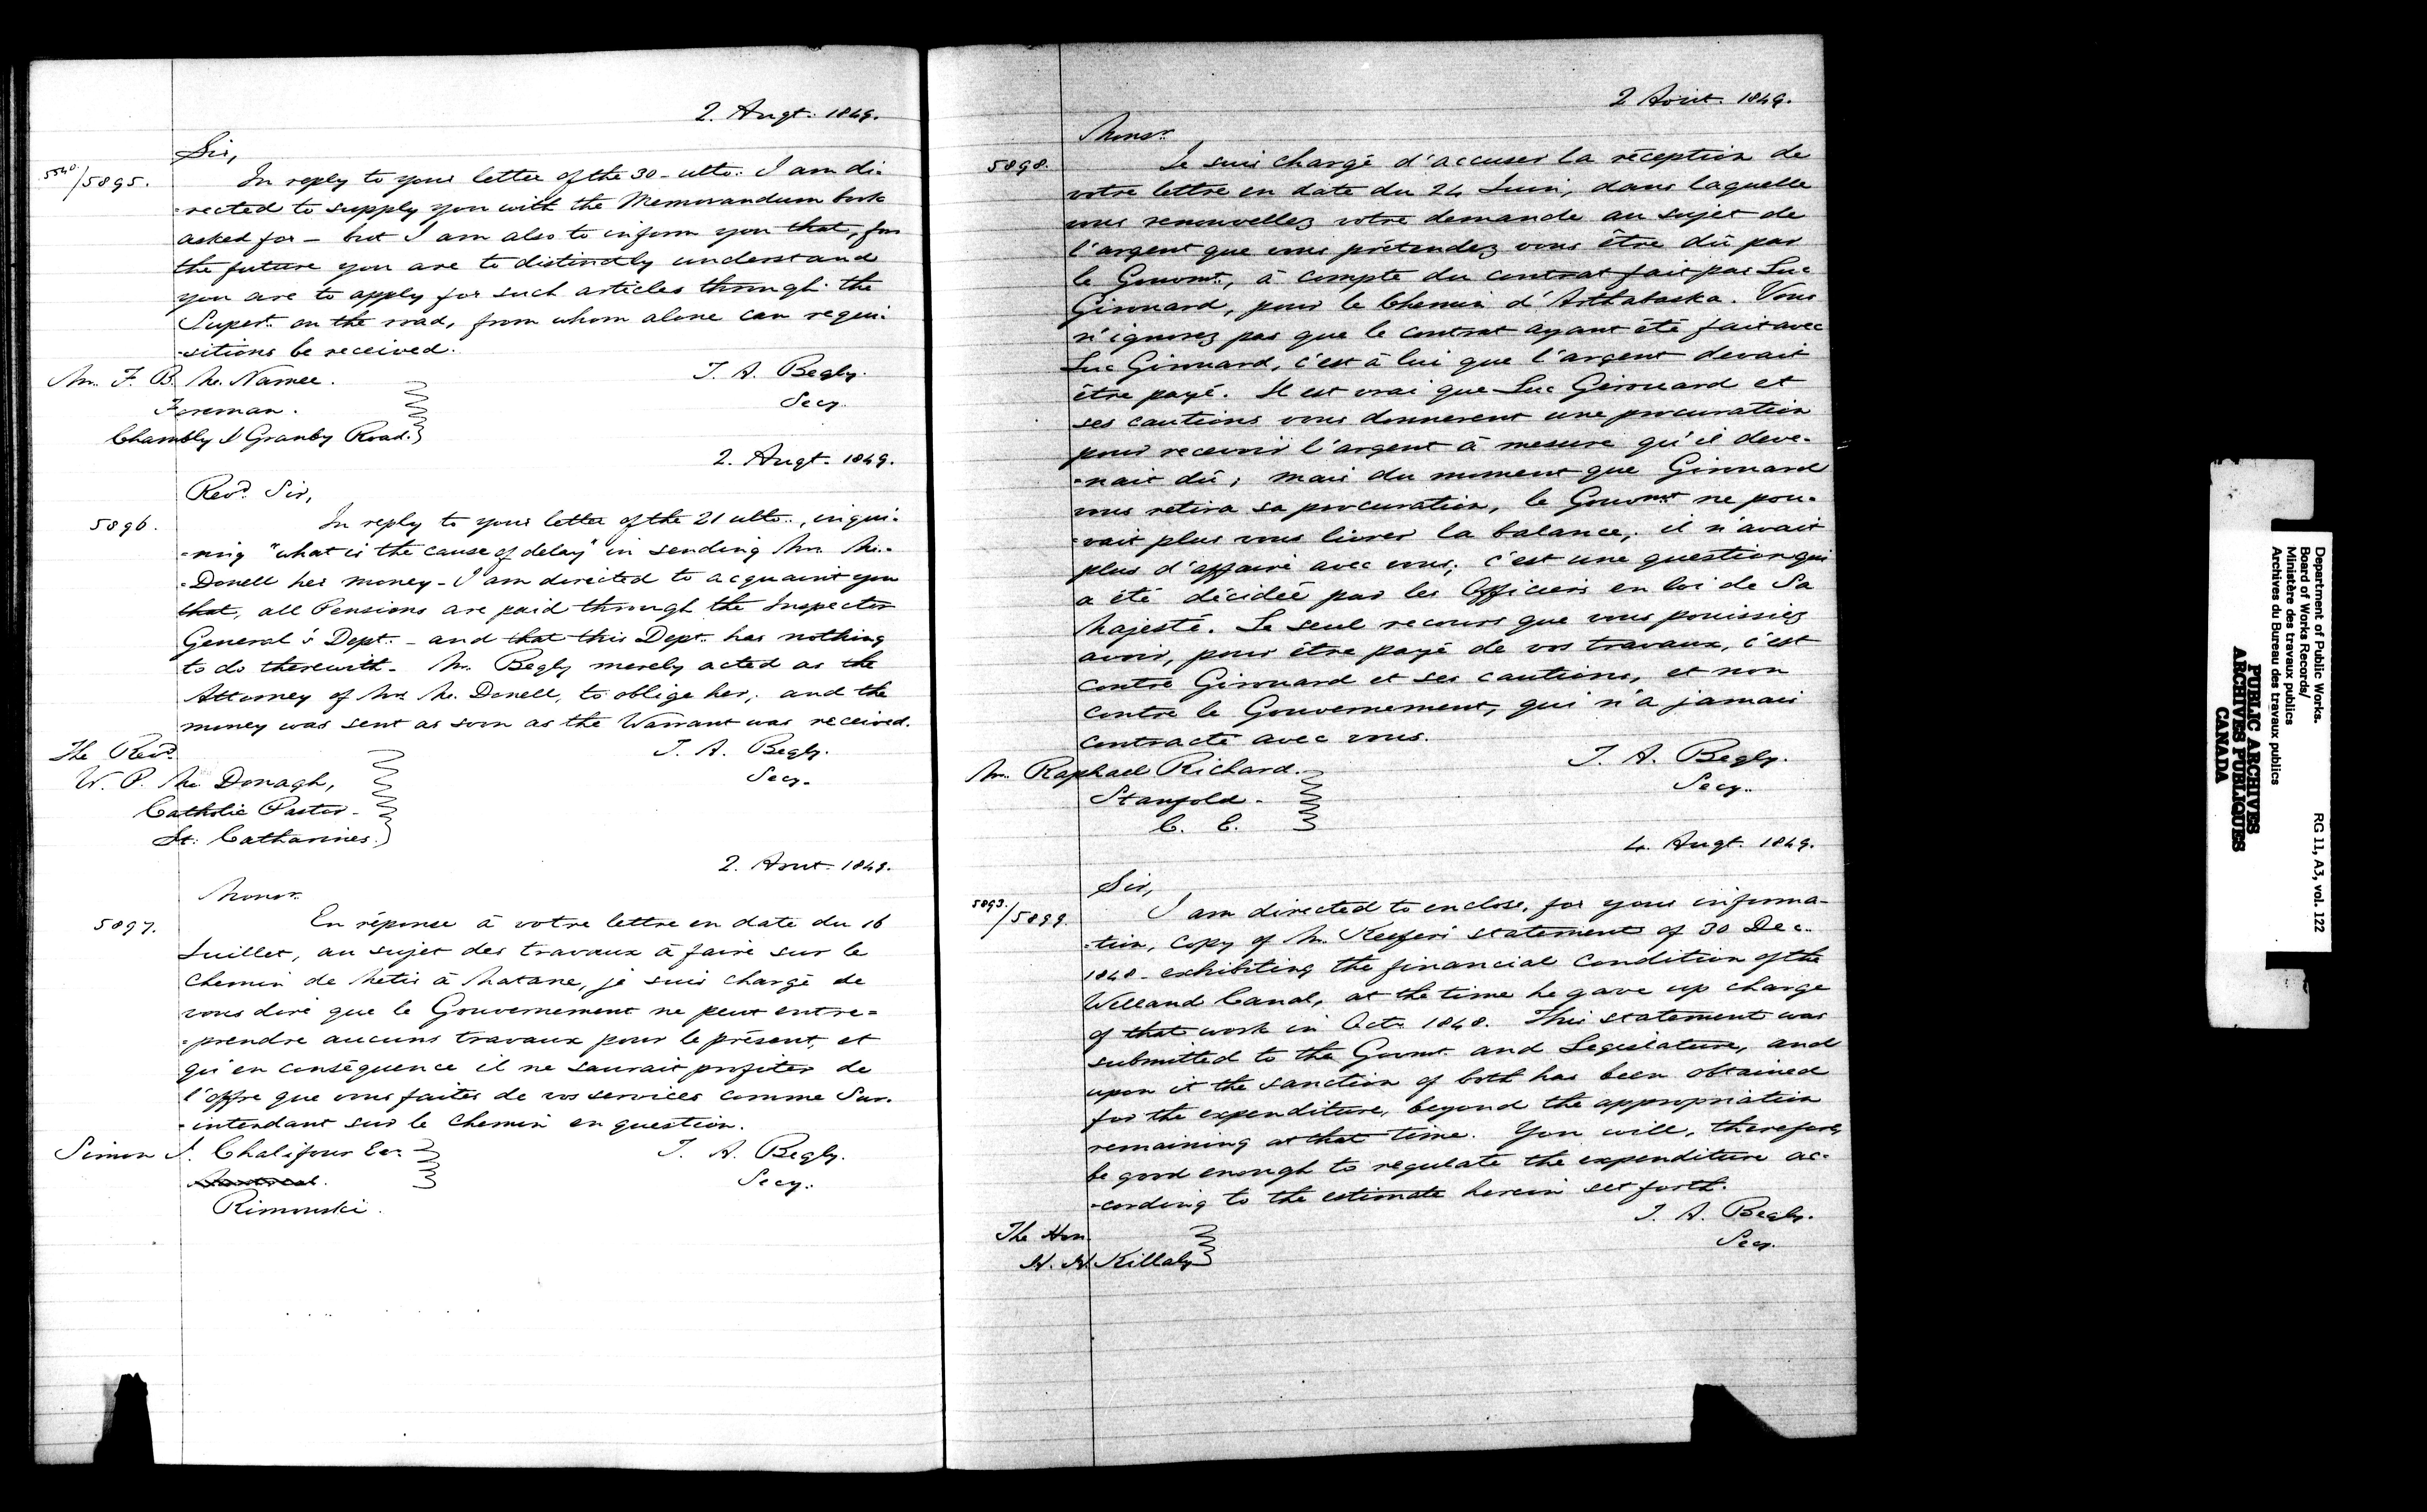 2. Augt. 1849.
Sir,
5540/5895.
In reply to your letter of the 30 - ulto. I am di-
-rected to supply you with the Memorandum book
asked for - but I am also to inform you that, for
the future you are to distinctly understand
you are to apply for such articles through the
Supert. on the road, from whom alone can requi-
-sitions be received.
Mr. F. B. Mc. Namee.
Foreman.
Chambly & Granby Road.
T. A. Begly.
Secy.
2. Augt. 1849.
Revd. Sir,
5896.
In reply to your letter of the 21 ulto., inqui-
-ring "what is the cause of delay" in sending Mrs. Mc.-
-Donell her money - I am directed to acquaint you
that, all Pensions are paid through the Inspector
General's Dept. - and that this Dept. has nothing
to do therewith. Mr. Begly merely acted as the
Attorney of Mrs. Mc. Donell, to oblige her; and the
money was sent as soon as the Warrant was received.
The Revd.
W. P. Mc Donagh,
Catholic Pastor -
St. Catharines.
T. A. Begly.
Secy.
2. Aout. 1849.
Monsr.
5897.
En réponse à votre lettre en date du 16
Juillet, au sujet des travaux à faire sur le
Chemin de Metis à Matane, je suis chargé de
vous dire que le Gouvernement ne peut entre=
-prendre aucuns travaux pour le présent, et
qu'en conséquence il ne saurait profiter de
l'offre que vous faites de vos services comme Sur.
-intendant sur le Chemin en question.
Simon J. Chalifour Esr.
Montreal.
Rimouski.
T. A. Begly.
Secy.
2 Aout. 1849.
Monsr.
5898.
Je suis chargé d'accuser la réception de
votre lettre en date du 24 Juin, dans laquelle
vous renouvellez votre demande au sujet de
l'argent que vous prétendez vous être dû par
le Gouvmt., à compte du contrat fait par Luc
Girouard, pour le Chemin d'Arthabaska. Vous
n'ignorez pas que le contrat ayant été fait avec
Luc Girouard, c'est à lui que l'argent devait
être payé. Il est vrai que Luc Girouard et
ses cautions vous donnerent une procuration
pour recevoir l'argent à mesure qu'il deve-
-nait dû; mais du moment que Girouard
vous retira sa procuration, le Gouvmt ne pou-
-vait plus vous livrer la balance; il n'avait
plus d'affaire avec vous; c'est une question qui
a été décidée par les Officiers en loi de Sa
Majesté. Le seul recours que vous pouissiez
avoir, pour être payé de vos travaux, c'est
contre Girouard et ses cautions, et non
contre le Gouvernement, qui n'a jamais
contracté avec vous.
Mr. Raphael Richard.
Stanfold -
C. E.
T. A. Begly.
Secy.
4. Augt. 1849.
Sir,
5893./5899.
I am directed to enclose, for your informa-
-tion, copy of Mr. Keefer's statement of 30 Dec.
1848 - exhibiting the financial condition of the
Welland Canal, at the time he gave up charge
of that work in Octr. 1848. This statement was
submitted to the Govmt. and Legislature, and
upon it the sanction of both has been obtained
for the expenditure, beyond the appropriation
remaining at that time. You will, therefore,
be good enough to regulate the expenditure ac-
-cording to the estimate herein set forth.
The Hon.
H. H. Killaly
T. A. Begly.
Secy.
Department of Public Works.
Board of Works Records/
Ministère des travaux publics
Archives du Bureau des travaux publics
RG 11, A3, vol. 122
PUBLIC ARCHIVES
ARCHIVES PUBLIQUES
CANADA